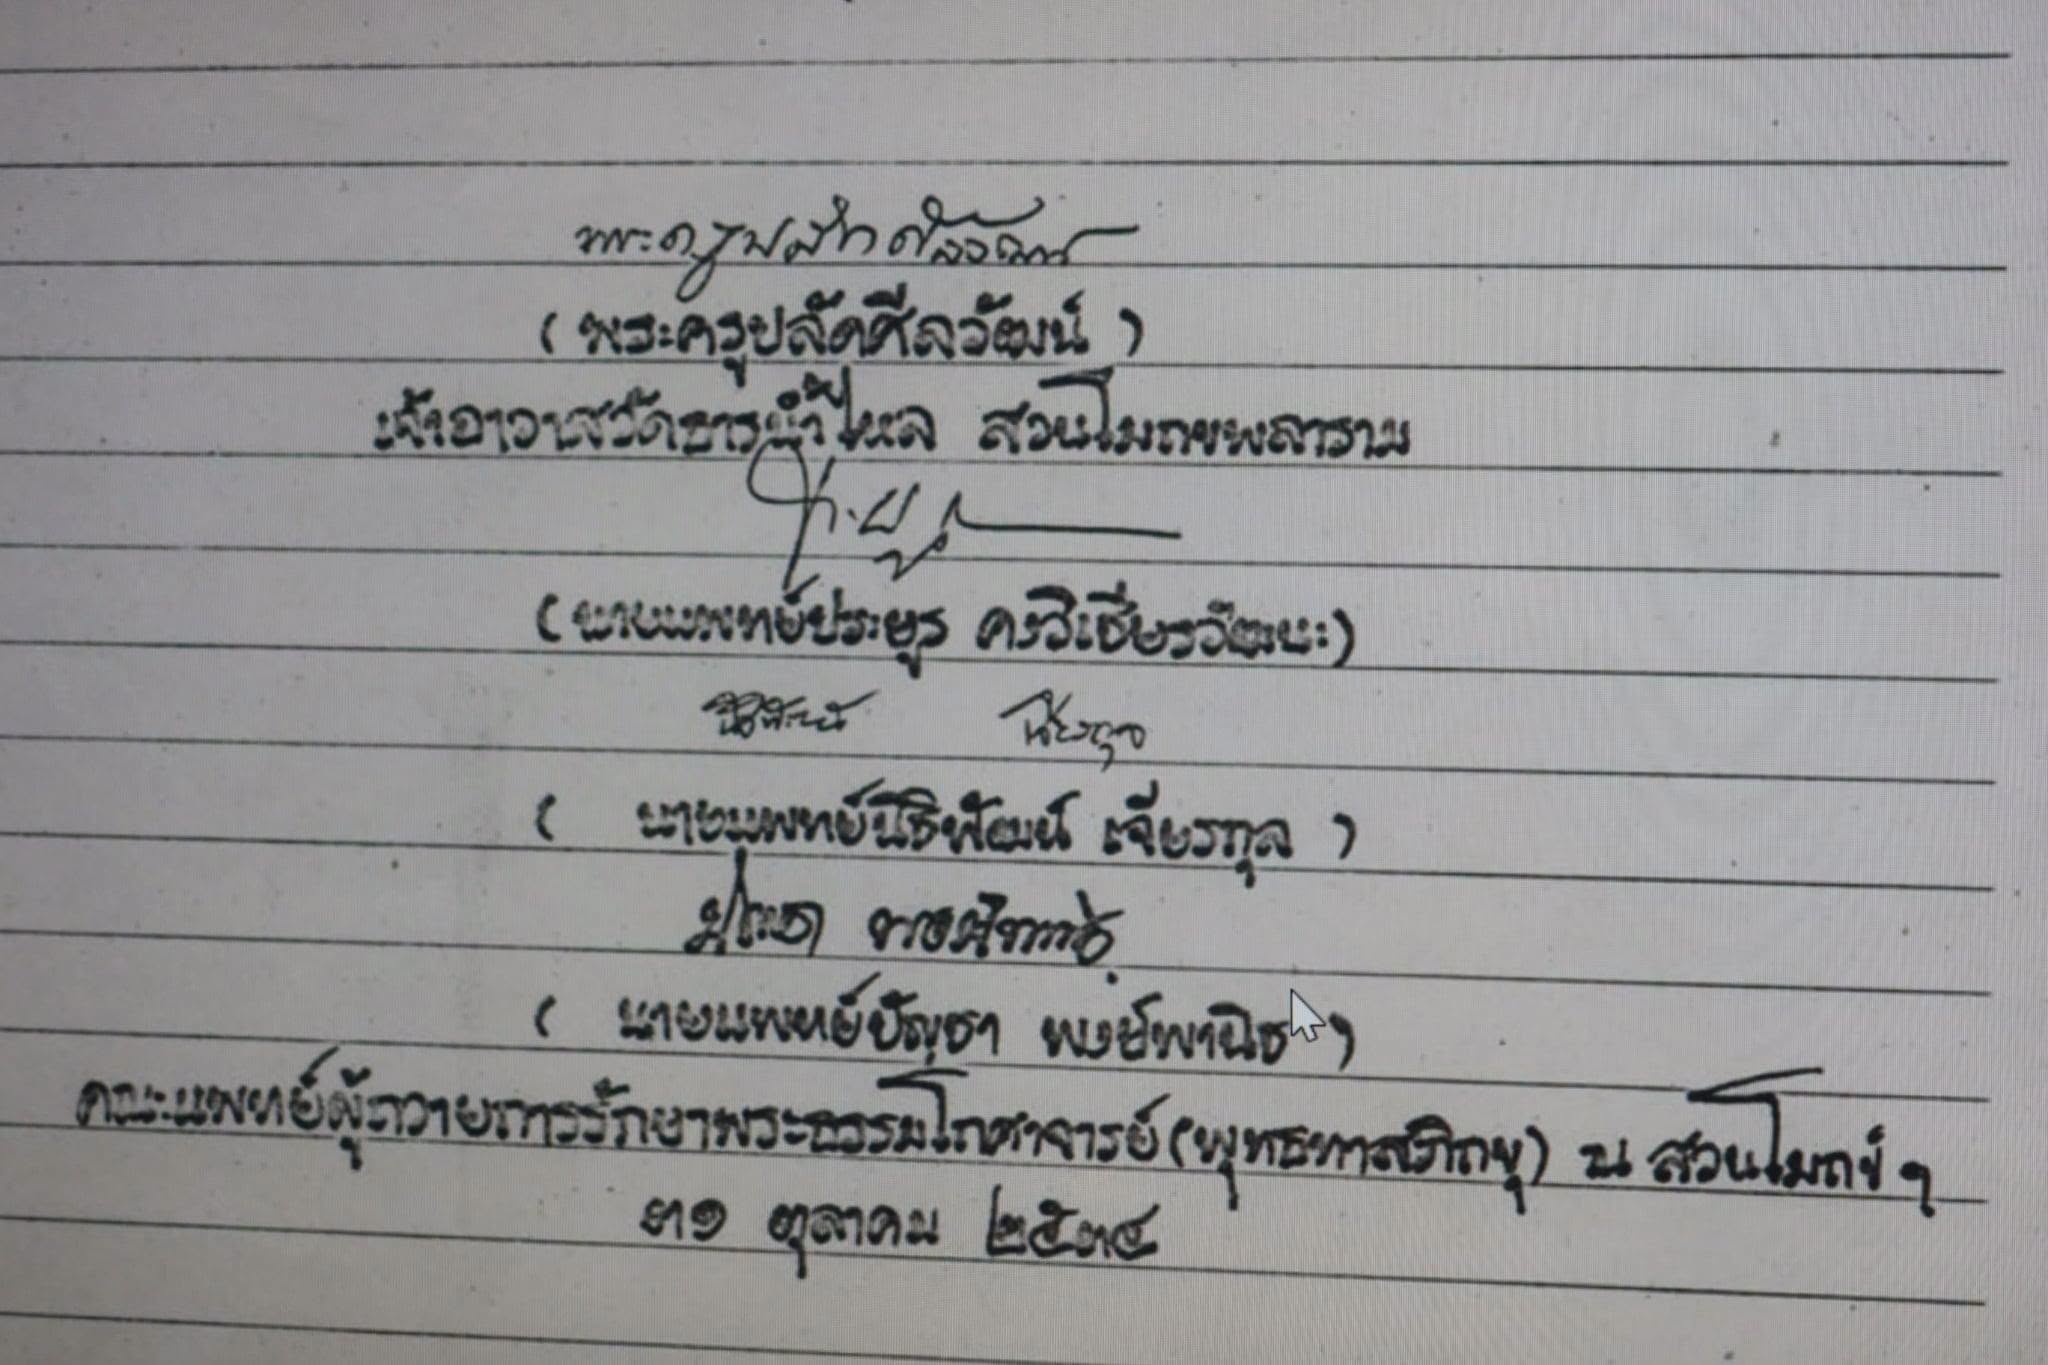 พระครูปลัดศีลวัฒน์
(พระครูปลัดศีลวัฒน์)
เจ้าอาวาสวัดธารน้ำไหล สวนโมกขพลาราม
(นายแพทย์ประยูร คงวิเชียรวัฒนะ)
นิธิพัฒน์ เจียรกุล
(นายแพทย์นิธิพัฒน์ เจียรกุล)
(นายแพทย์บัญชา พงษ์พานิช)
คณะแพทย์ผู้ถวายการรักษาพระธรรมโกศาจารย์(พุทธทาสภิกขุ) ณ สวนโมกข์ฯ
๓๑ ตุลาคม ๒๕๓๔